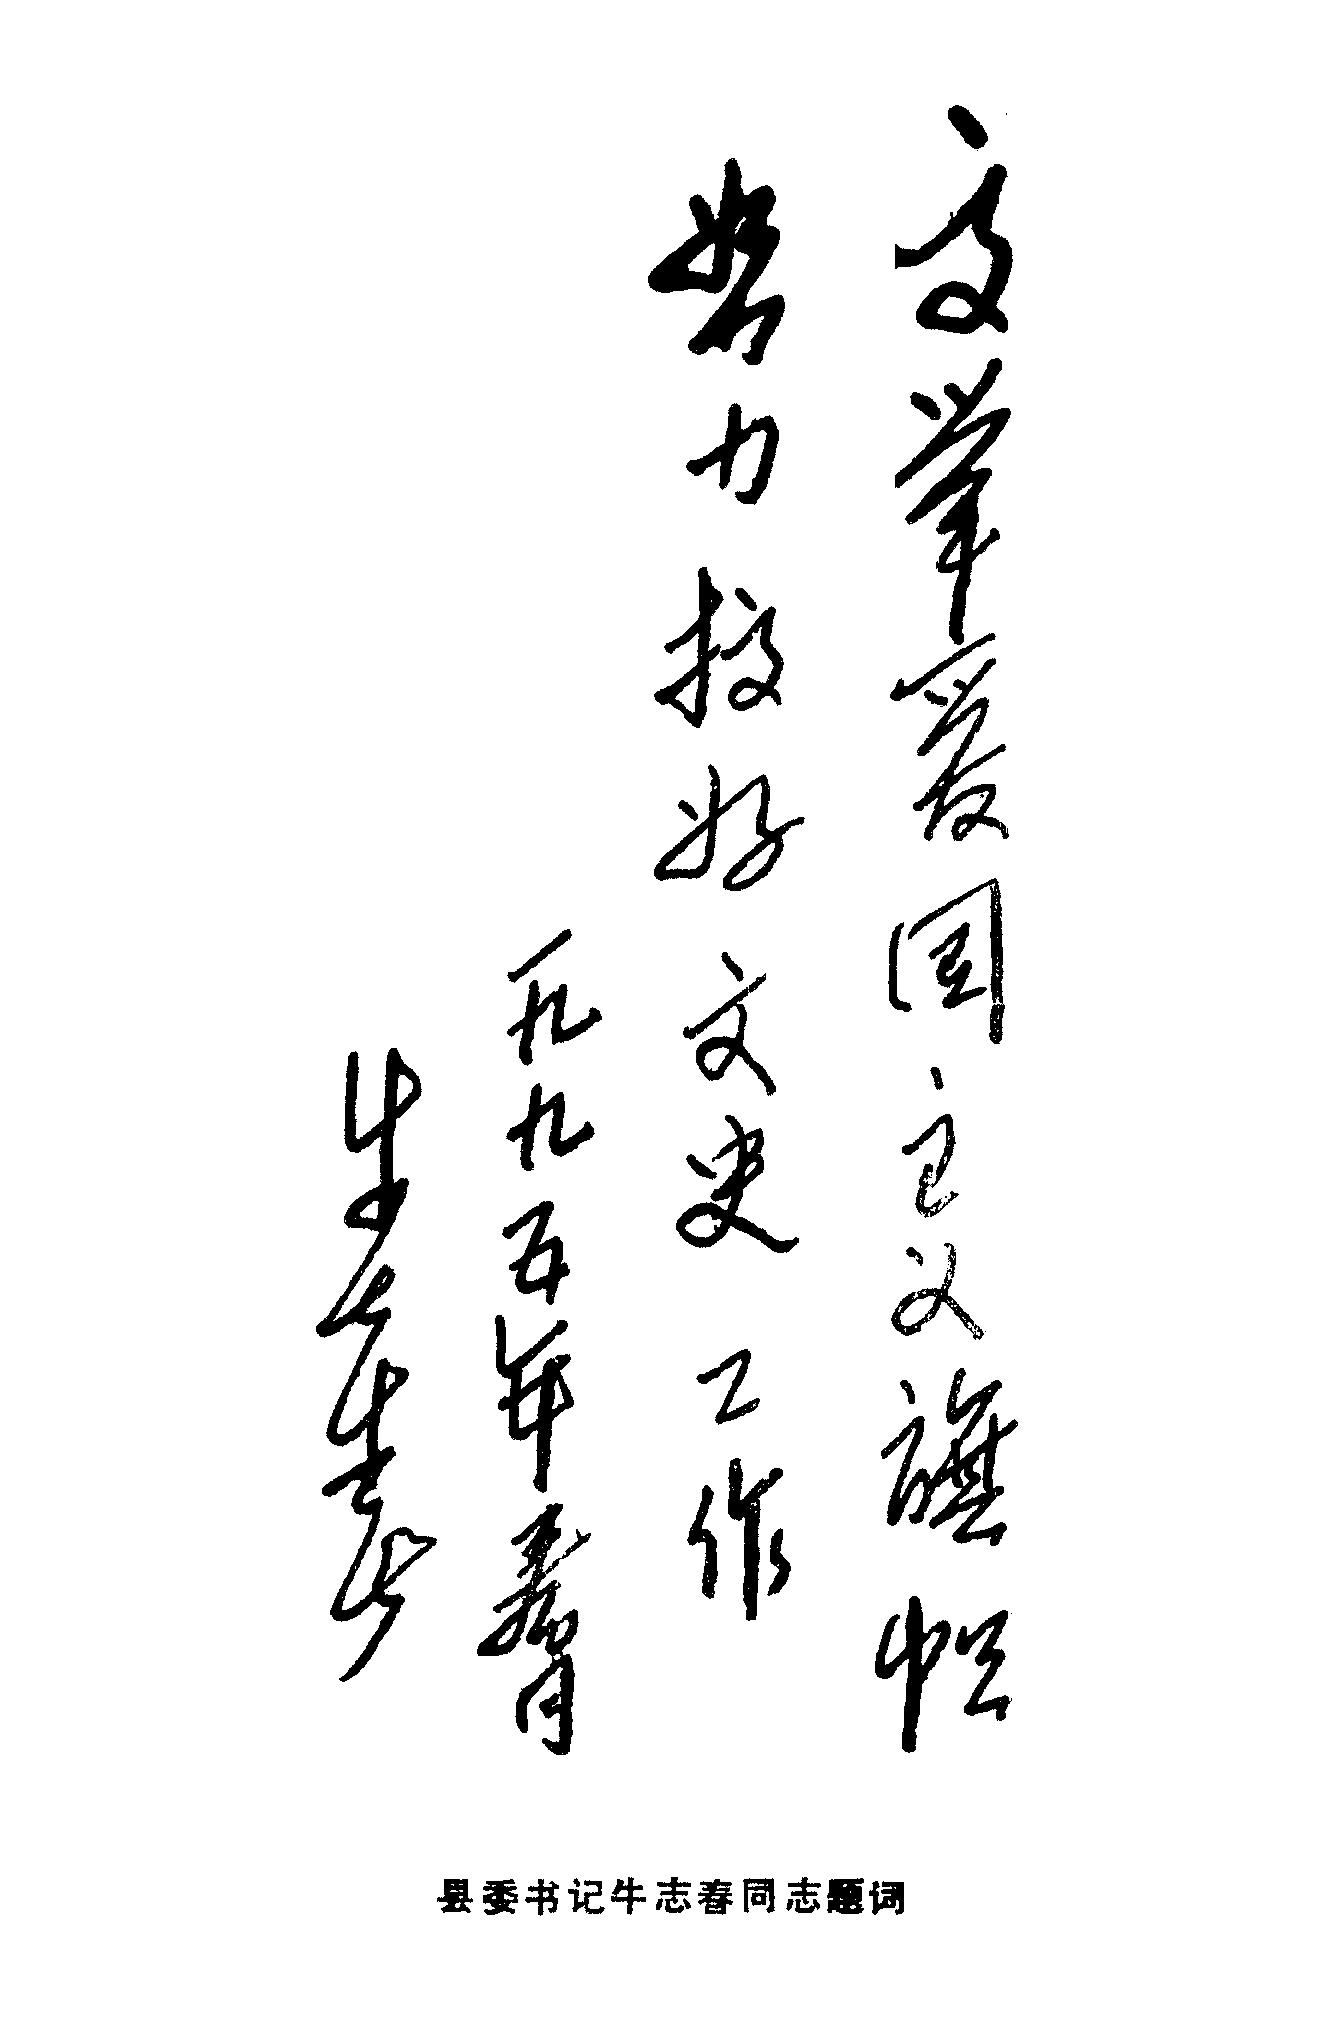 高举爱国主义旗帜
努力搞好文史工作
一九九五年春月
牛志春
县委书记牛志春同志题词